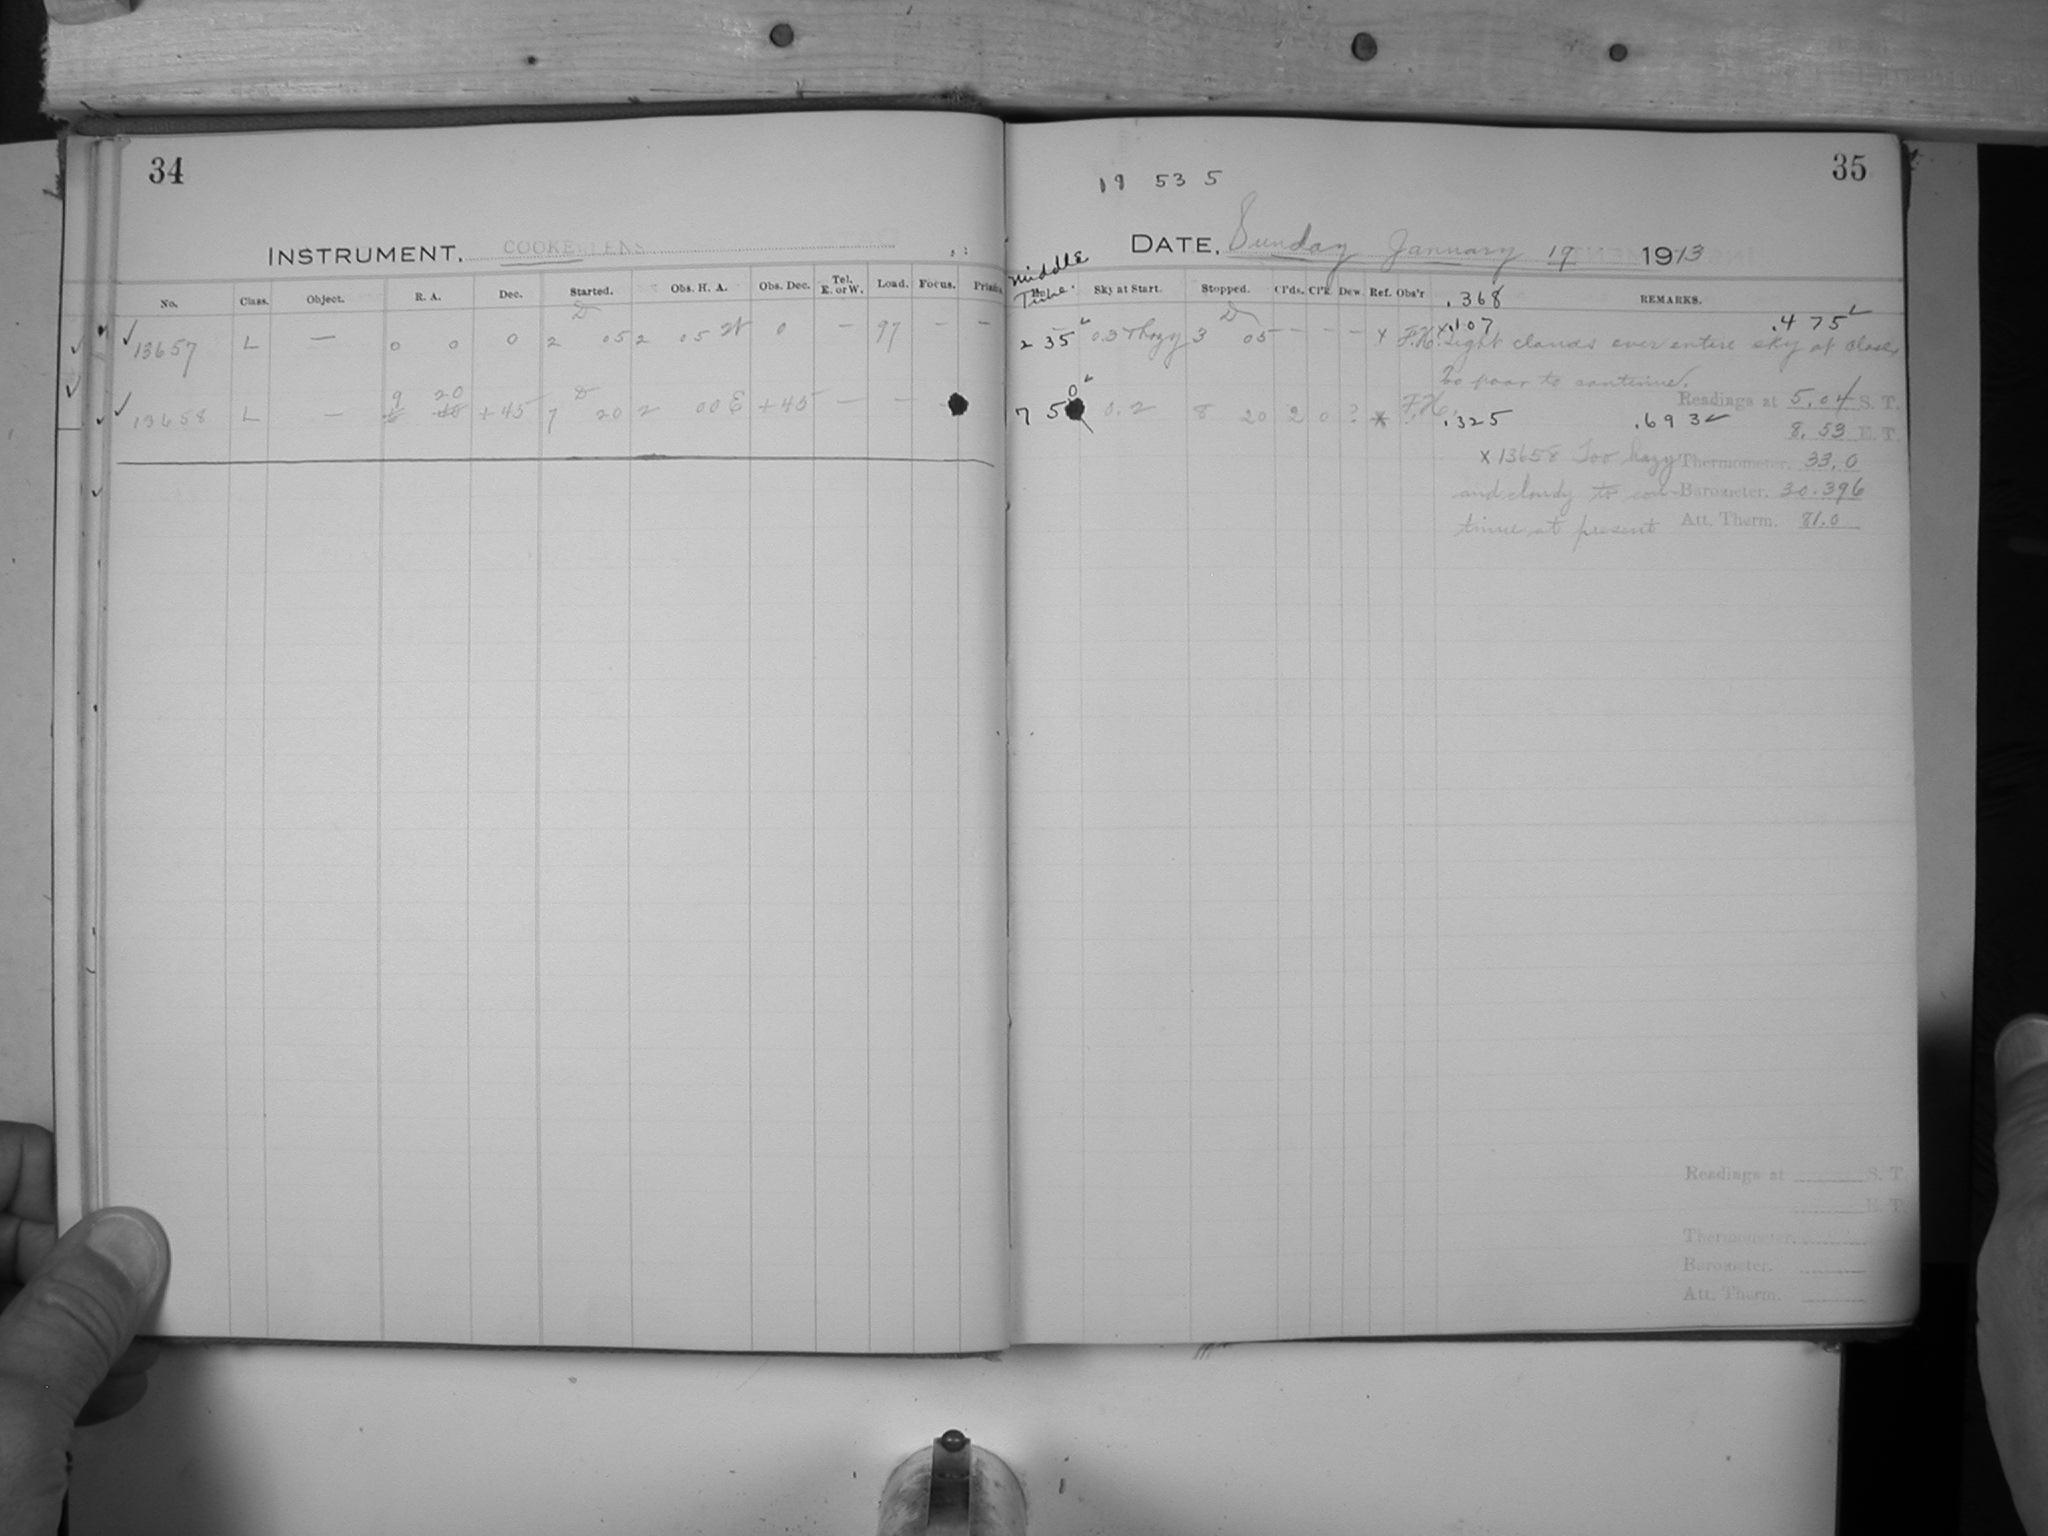 34
INSTRUMENT. COOKE LENS
No. Class. Object. R. A. Dec. Started. Obs. H. A. Obs. Dec. Tel. E. or W. Load. Focus. Prisms.
13657 L — 0 0 0 2 05 2 05 W 0 — 97 — —
9 20
13658 L — +45 7 20 2 00 E +45 — —
35
19 53 5
DATE, Sunday January 19 1913
Middle Time. Sky at Start. Stopped. Cl'ds. Cl'k. Dew. Ref. Obs'r .368 REMARKS.
x.107 .475
2 35 0.3 + hazy 3 05 — — — x F.H. Light clouds over entire sky at close,
Too poor to continue.
7 50 0.2 8 20 2 0 ? * F.H. .325 .693
x 13658 Too hazy
and cloudy to con-
tinue at present
Readings at 5.04 S. T.
8.53 E. T.
Thermometer. 33.0
Barometer. 30.396
Att. Therm. 81.0
Readings at S. T.
E. T.
Thermometer.
Barometer.
Att. Therm.